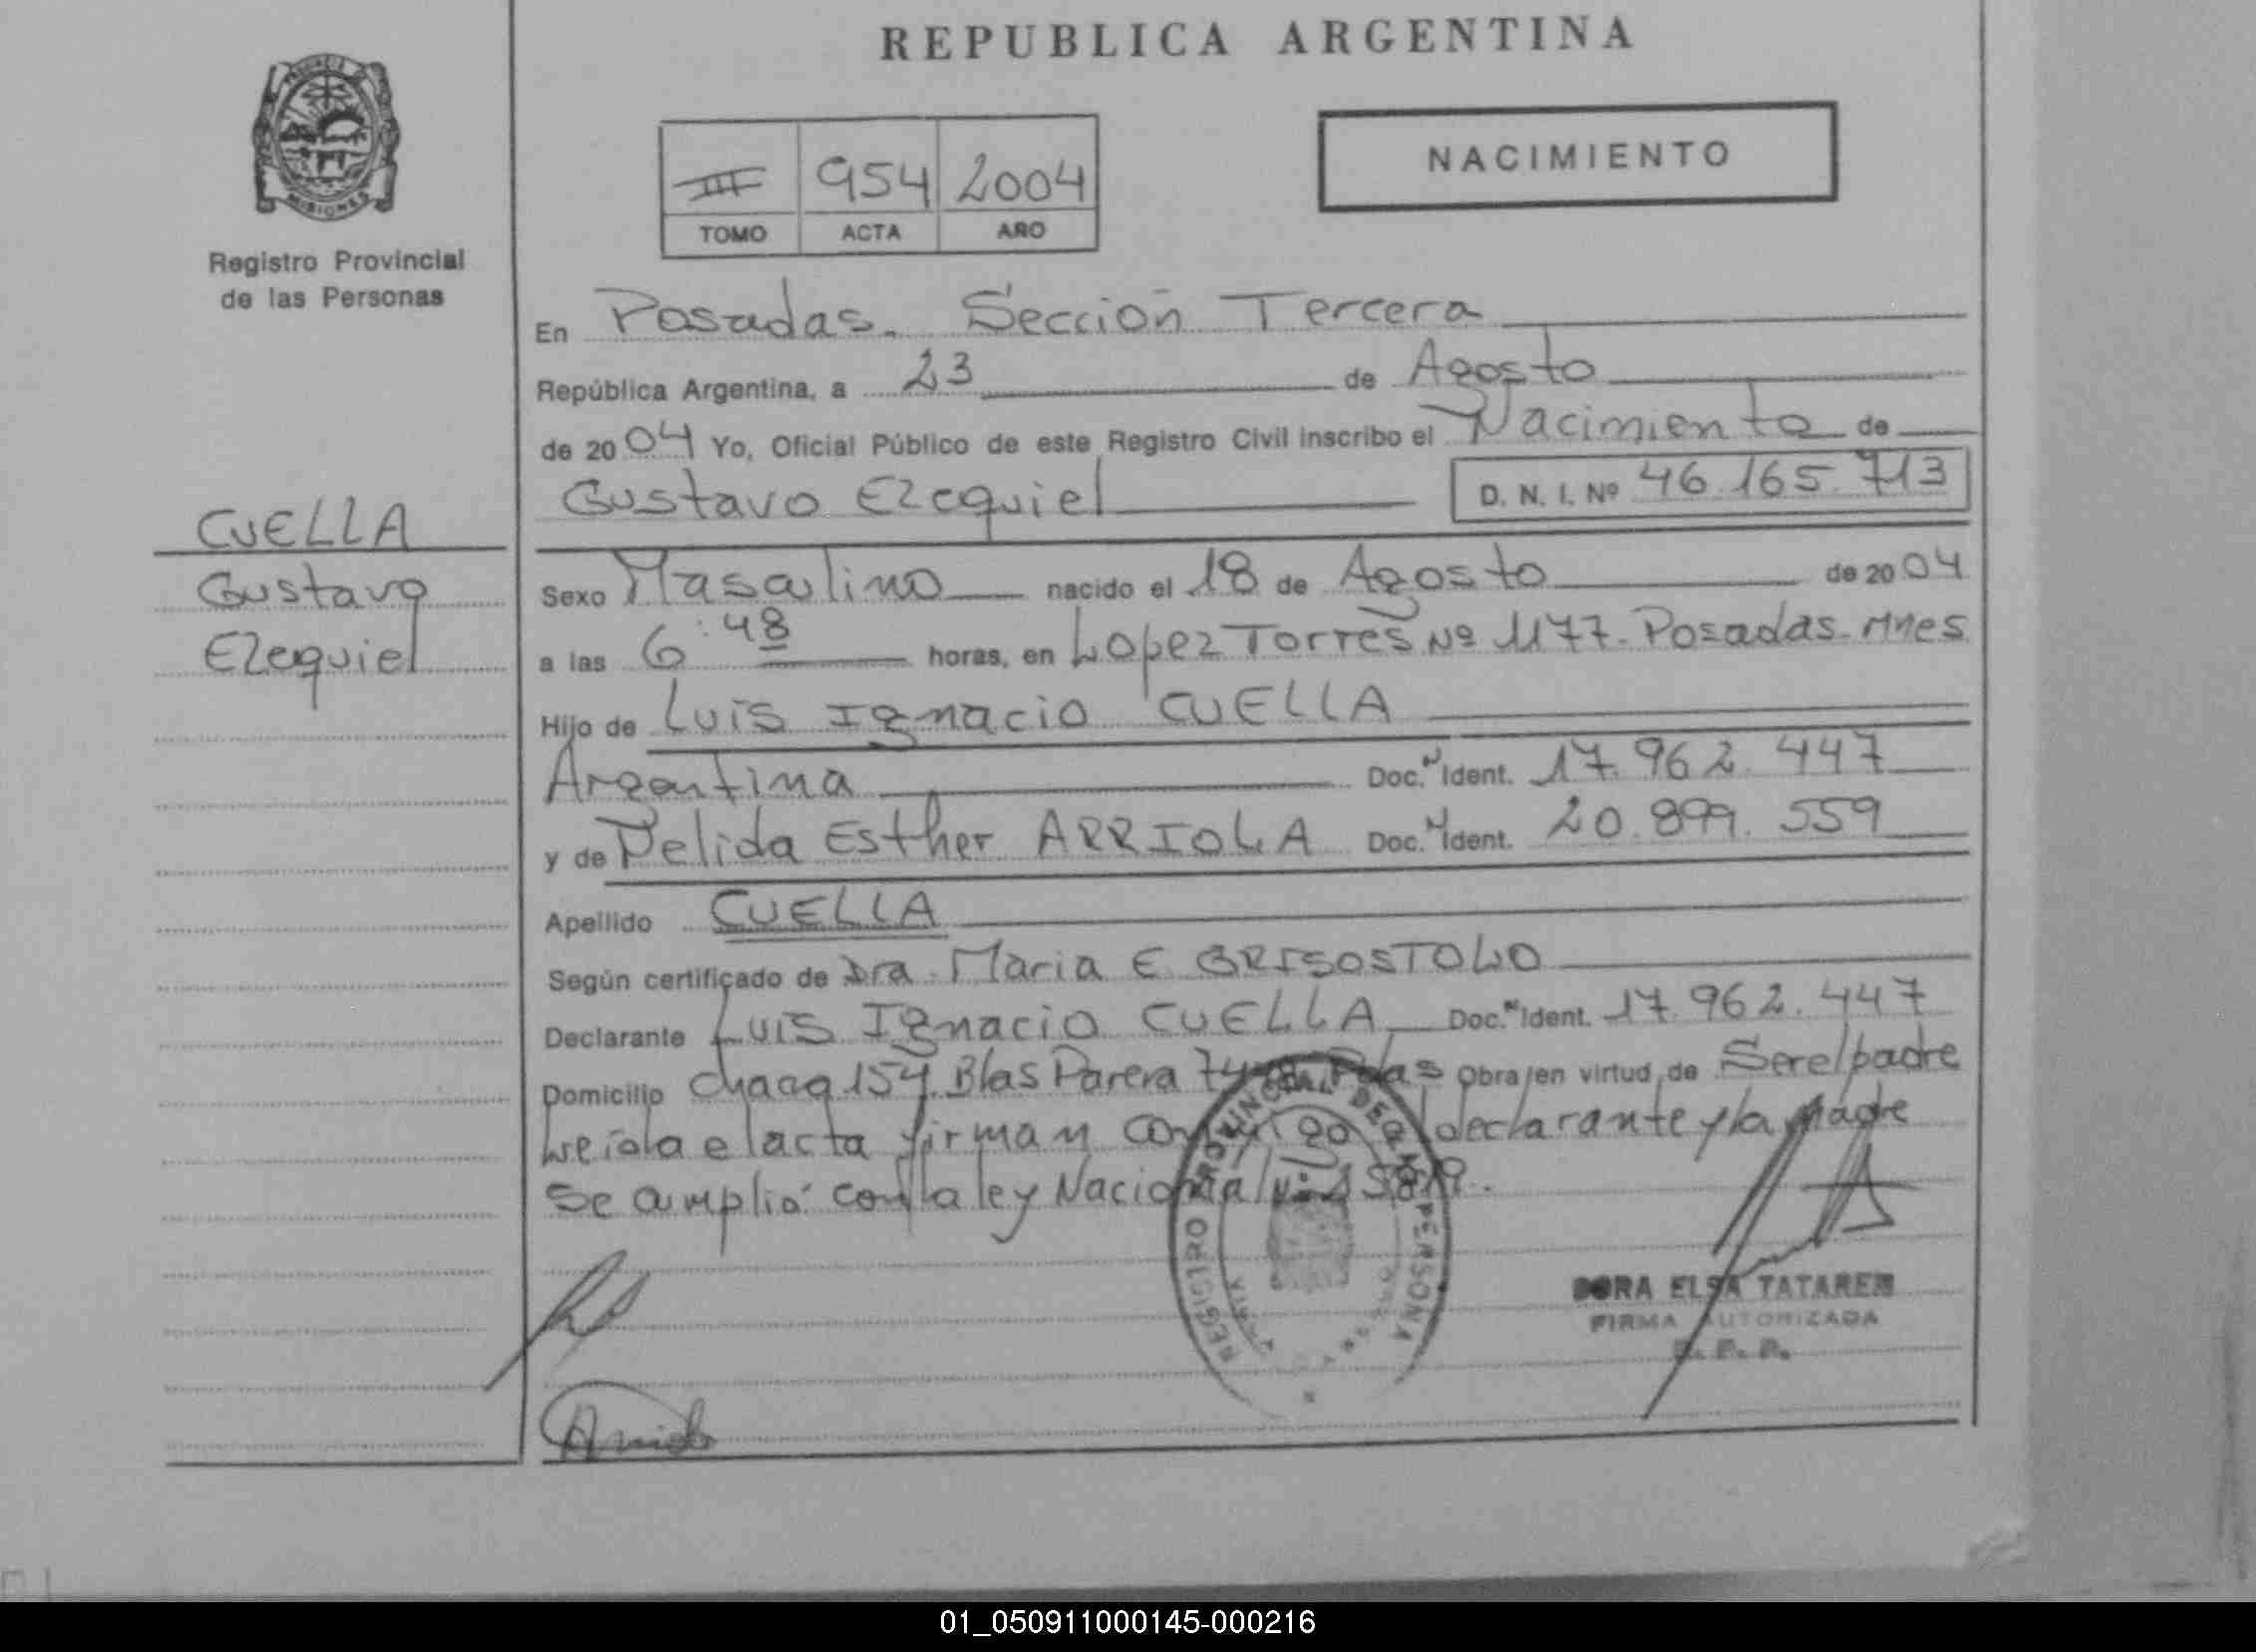 REPUBLICA ARGENTINA
NACIMIENTO
III 954 2004
TOMO ACTA AÑO
MISIONES
Registro Provincial
de las Personas
CUELLA
Gustavo
Ezequiel
En Posadas. Sección Tercera
República Argentina, a 23 de Agosto
de 2004 Yo, Oficial Público de este Registro Civil inscribo el Nacimiento de
Gustavo Ezequiel D. N. I. Nº 46.165.713
Sexo Masculino nacido el 18 de Agosto de 2004
a las 6:48 horas, en Lopez Torres Nº 1177. Posadas. Mnes
Hijo de Luis Ignacio CUELLA
Argentina Doc. Ident. 17.962.447
y de Delida Esther ARRIOLA Doc. Ident. 20.899.559
Apellido CUELLA
Según certificado de Dra. Maria E GRISOSTOLO
Declarante Luis Ignacio CUELLA Doc. Ident. 17.962.447
Domicilio chaca 154. Blas Parera Pdas Obra en virtud de Ser el padre
Leida el acta firman conmigo el declarante y la madre
Se cumplió con la ley Nacional
REGISTRO PROVINCIAL DE LAS PERSONA
DORA ELSA TATAREN
FIRMA AUTORIZADA
R. P. P.
01_050911000145-000216